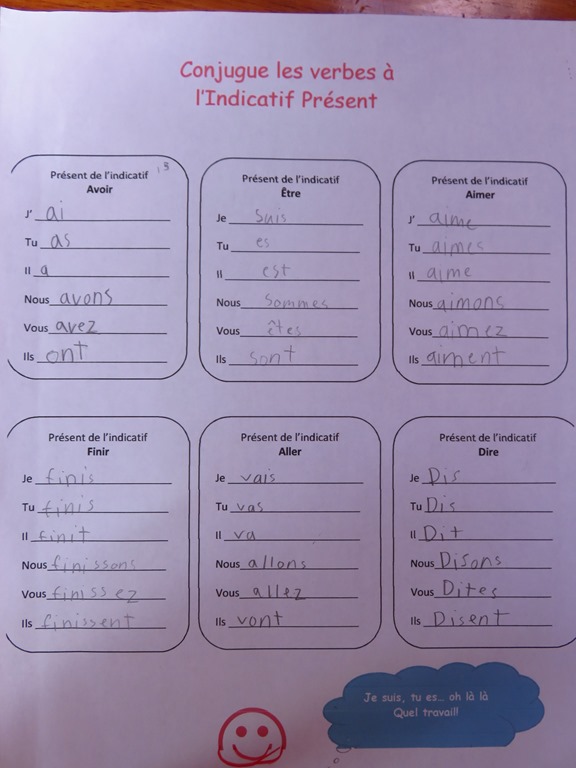 Conjugue les verbes à
l'Indicatif Présent
Présent de l'indicatif
Avoir
J' ai
Tu as
Il a
Nous avons
Vous avez
Ils ont
Présent de l'indicatif
Être
Je suis
Tu es
Il est
Nous sommes
Vous êtes
Ils sont
Présent de l'indicatif
Aimer
J' aime
Tu aimes
Il aime
Nous aimons
Vous aimez
Ils aiment
Présent de l'indicatif
Finir
Je finis
Tu finis
Il finit
Nous finissons
Vous finissez
Ils finissent
Présent de l'indicatif
Aller
Je vais
Tu vas
Il va
Nous allons
Vous allez
Ils vont
Présent de l'indicatif
Dire
Je Dis
Tu Dis
Il Dit
Nous Disons
Vous Dites
Ils Disent
Je suis, tu es... oh là là
Quel travail!